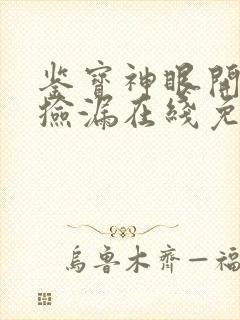 鉴寶神眼開
撿漏在綫免
烏魯木齊—福